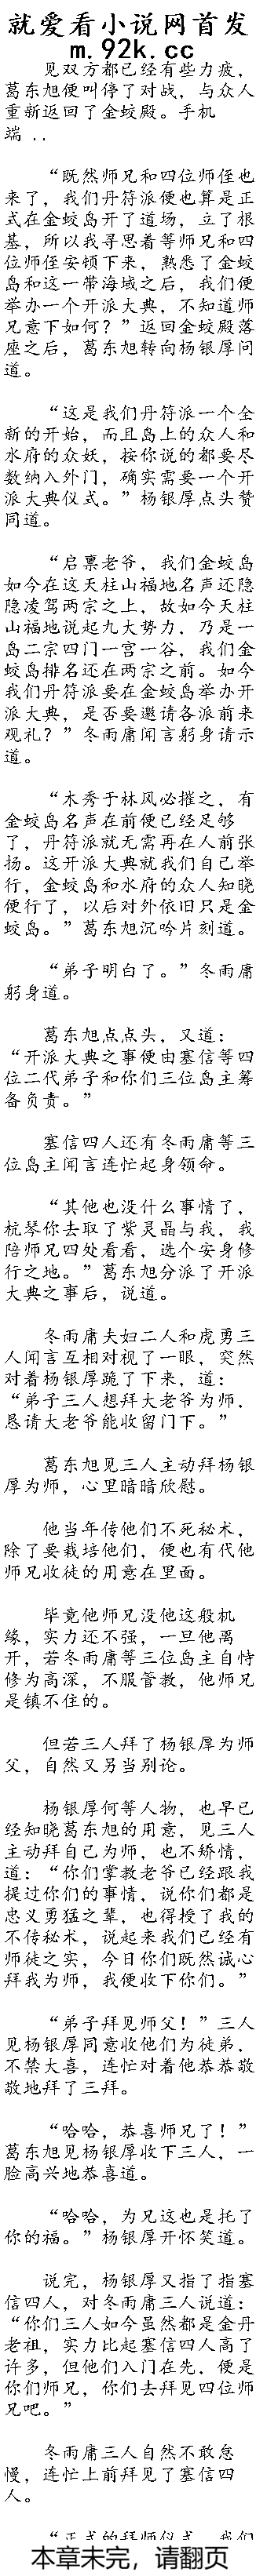 就爱看小说网首发
m.92k.cc
见双方都已经有些力疲，
葛东旭便叫停了对战，与众人
重新返回了金蛟殿。手机
端 ..
“既然师兄和四位师侄也
来了，我们丹符派便也算是正
式在金蛟岛开了道场，立了根
基，所以我寻思着等师兄和四
位师侄安顿下来，熟悉了金蛟
岛和这一带海域之后，我们便
举办一个开派大典，不知道师
兄意下如何？”返回金蛟殿落
座之后，葛东旭转向杨银厚问
道。
“这是我们丹符派一个全
新的开始，而且岛上的众人和
水府的众妖，按你说的都要尽
数纳入外门，确实需要一个开
派大典仪式。”杨银厚点头赞
同道。
“启禀老爷，我们金蛟岛
如今在这天柱山福地名声还隐
隐凌驾两宗之上，故如今天柱
山福地说起九大势力，乃是一
岛二宗四门一宫一谷，我们金
蛟岛排名还在两宗之前。如今
我们丹符派要在金蛟岛举办开
派大典，是否要邀请各派前来
观礼？”冬雨庸闻言躬身请示
道。
“木秀于林风必摧之，有
金蛟岛名声在前便已经足够
了，丹符派就无需再在人前张
扬。这开派大典就我们自己举
行，金蛟岛和水府的众人知晓
便行了，以后对外依旧只是金
蛟岛。”葛东旭沉吟片刻道。
“弟子明白了。”冬雨庸
躬身道。
葛东旭点点头，又道：
“开派大典之事便由塞信等四
位二代弟子和你们三位岛主筹
备负责。”
塞信四人还有冬雨庸等三
位岛主闻言连忙起身领命。
“其他也没什么事情了，
杭琴你去取了紫灵晶与我，我
陪师兄四处看看，选个安身修
行之地。”葛东旭分派了开派
大典之事后，说道。
冬雨庸夫妇二人和虎勇三
人闻言互相对视了一眼，突然
对着杨银厚跪了下来，道：
“弟子三人想拜大老爷为师，
恳请大老爷能收留门下。”
葛东旭见三人主动拜杨银
厚为师，心里暗暗欣慰。
他当年传他们不死秘术，
除了要栽培他们，便也有代他
师兄收徒的用意在里面。
毕竟他师兄没他这般机
缘，实力还不强，一旦他离
开，若冬雨庸等三位岛主自恃
修为高深，不服管教，他师兄
是镇不住的。
但若三人拜了杨银厚为师
父，自然又另当别论。
杨银厚何等人物，也早已
经知晓葛东旭的用意，见三人
主动拜自己为师，也不矫情，
道：“你们掌教老爷已经跟我
提过你们的事情，说你们都是
忠义勇猛之辈，也得授了我的
不传秘术，说起来我们已经有
师徒之实，今日你们既然诚心
拜我为师，我便收下你们。”
“弟子拜见师父！”三人
见杨银厚同意收他们为徒弟，
不禁大喜，连忙对着他恭恭敬
敬地拜了三拜。
“哈哈，恭喜师兄了！”
葛东旭见杨银厚收下三人，一
脸高兴地恭喜道。
“哈哈，为兄这也是托了
你的福。”杨银厚开怀笑道。
说完，杨银厚又指了指塞
信四人，对冬雨庸三人说道：
“你们三人如今虽然都是金丹
老祖，实力比起塞信四人高了
许多，但他们入门在先，便是
你们师兄，你们去拜见四位师
兄吧。”
冬雨庸三人自然不敢怠
慢，连忙上前拜见了塞信四
人。
“正式的拜师仪式，我们
本章未完，请翻页